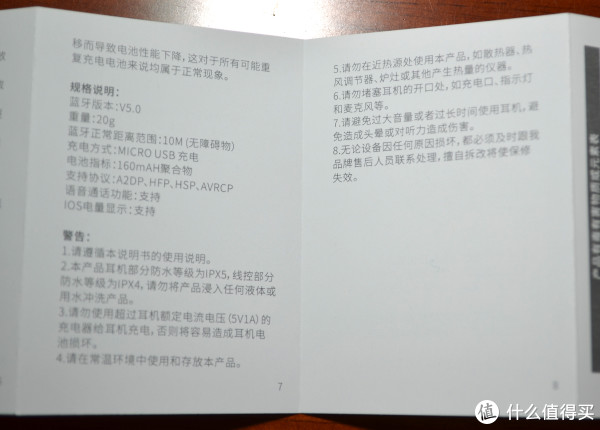 移而导致电池性能下降，这对于所有可能重
复充电电池来说均属于正常现象。
规格说明：
蓝牙版本：V5.0
重量：20g
蓝牙正常距离范围：10M (无障碍物)
充电方式：MICRO USB 充电
电池指标：160mAH聚合物
支持协议：A2DP、HFP、HSP、AVRCP
语音通话功能：支持
IOS电量显示：支持
警告：
1.请遵循本说明书的使用说明。
2.本产品耳机部分防水等级为IPX5，线控部分
防水等级为IPX4，请勿将产品浸入任何液体或
用水冲洗产品。
3.请勿使用超过耳机额定电流电压（5V1A）的
充电器给耳机充电，否则将容易造成耳机电
池损坏。
4.请在常温环境中使用和存放本产品。
7
5.请勿在近热源处使用本产品，如散热器、热
风调节器、炉灶或其他产生热量的仪器。
6.请勿堵塞耳机的开口处，如充电口、指示灯
和麦克风等。
7.请避免过大音量或者过长时间使用耳机，避
免造成头晕或对听力造成伤害。
8.无论设备因任何原因损坏，都必须及时跟我
品牌售后人员联系处理，擅自拆改将使保修
失效。
8
产品有毒有害物质或元素表
值 什么值得买